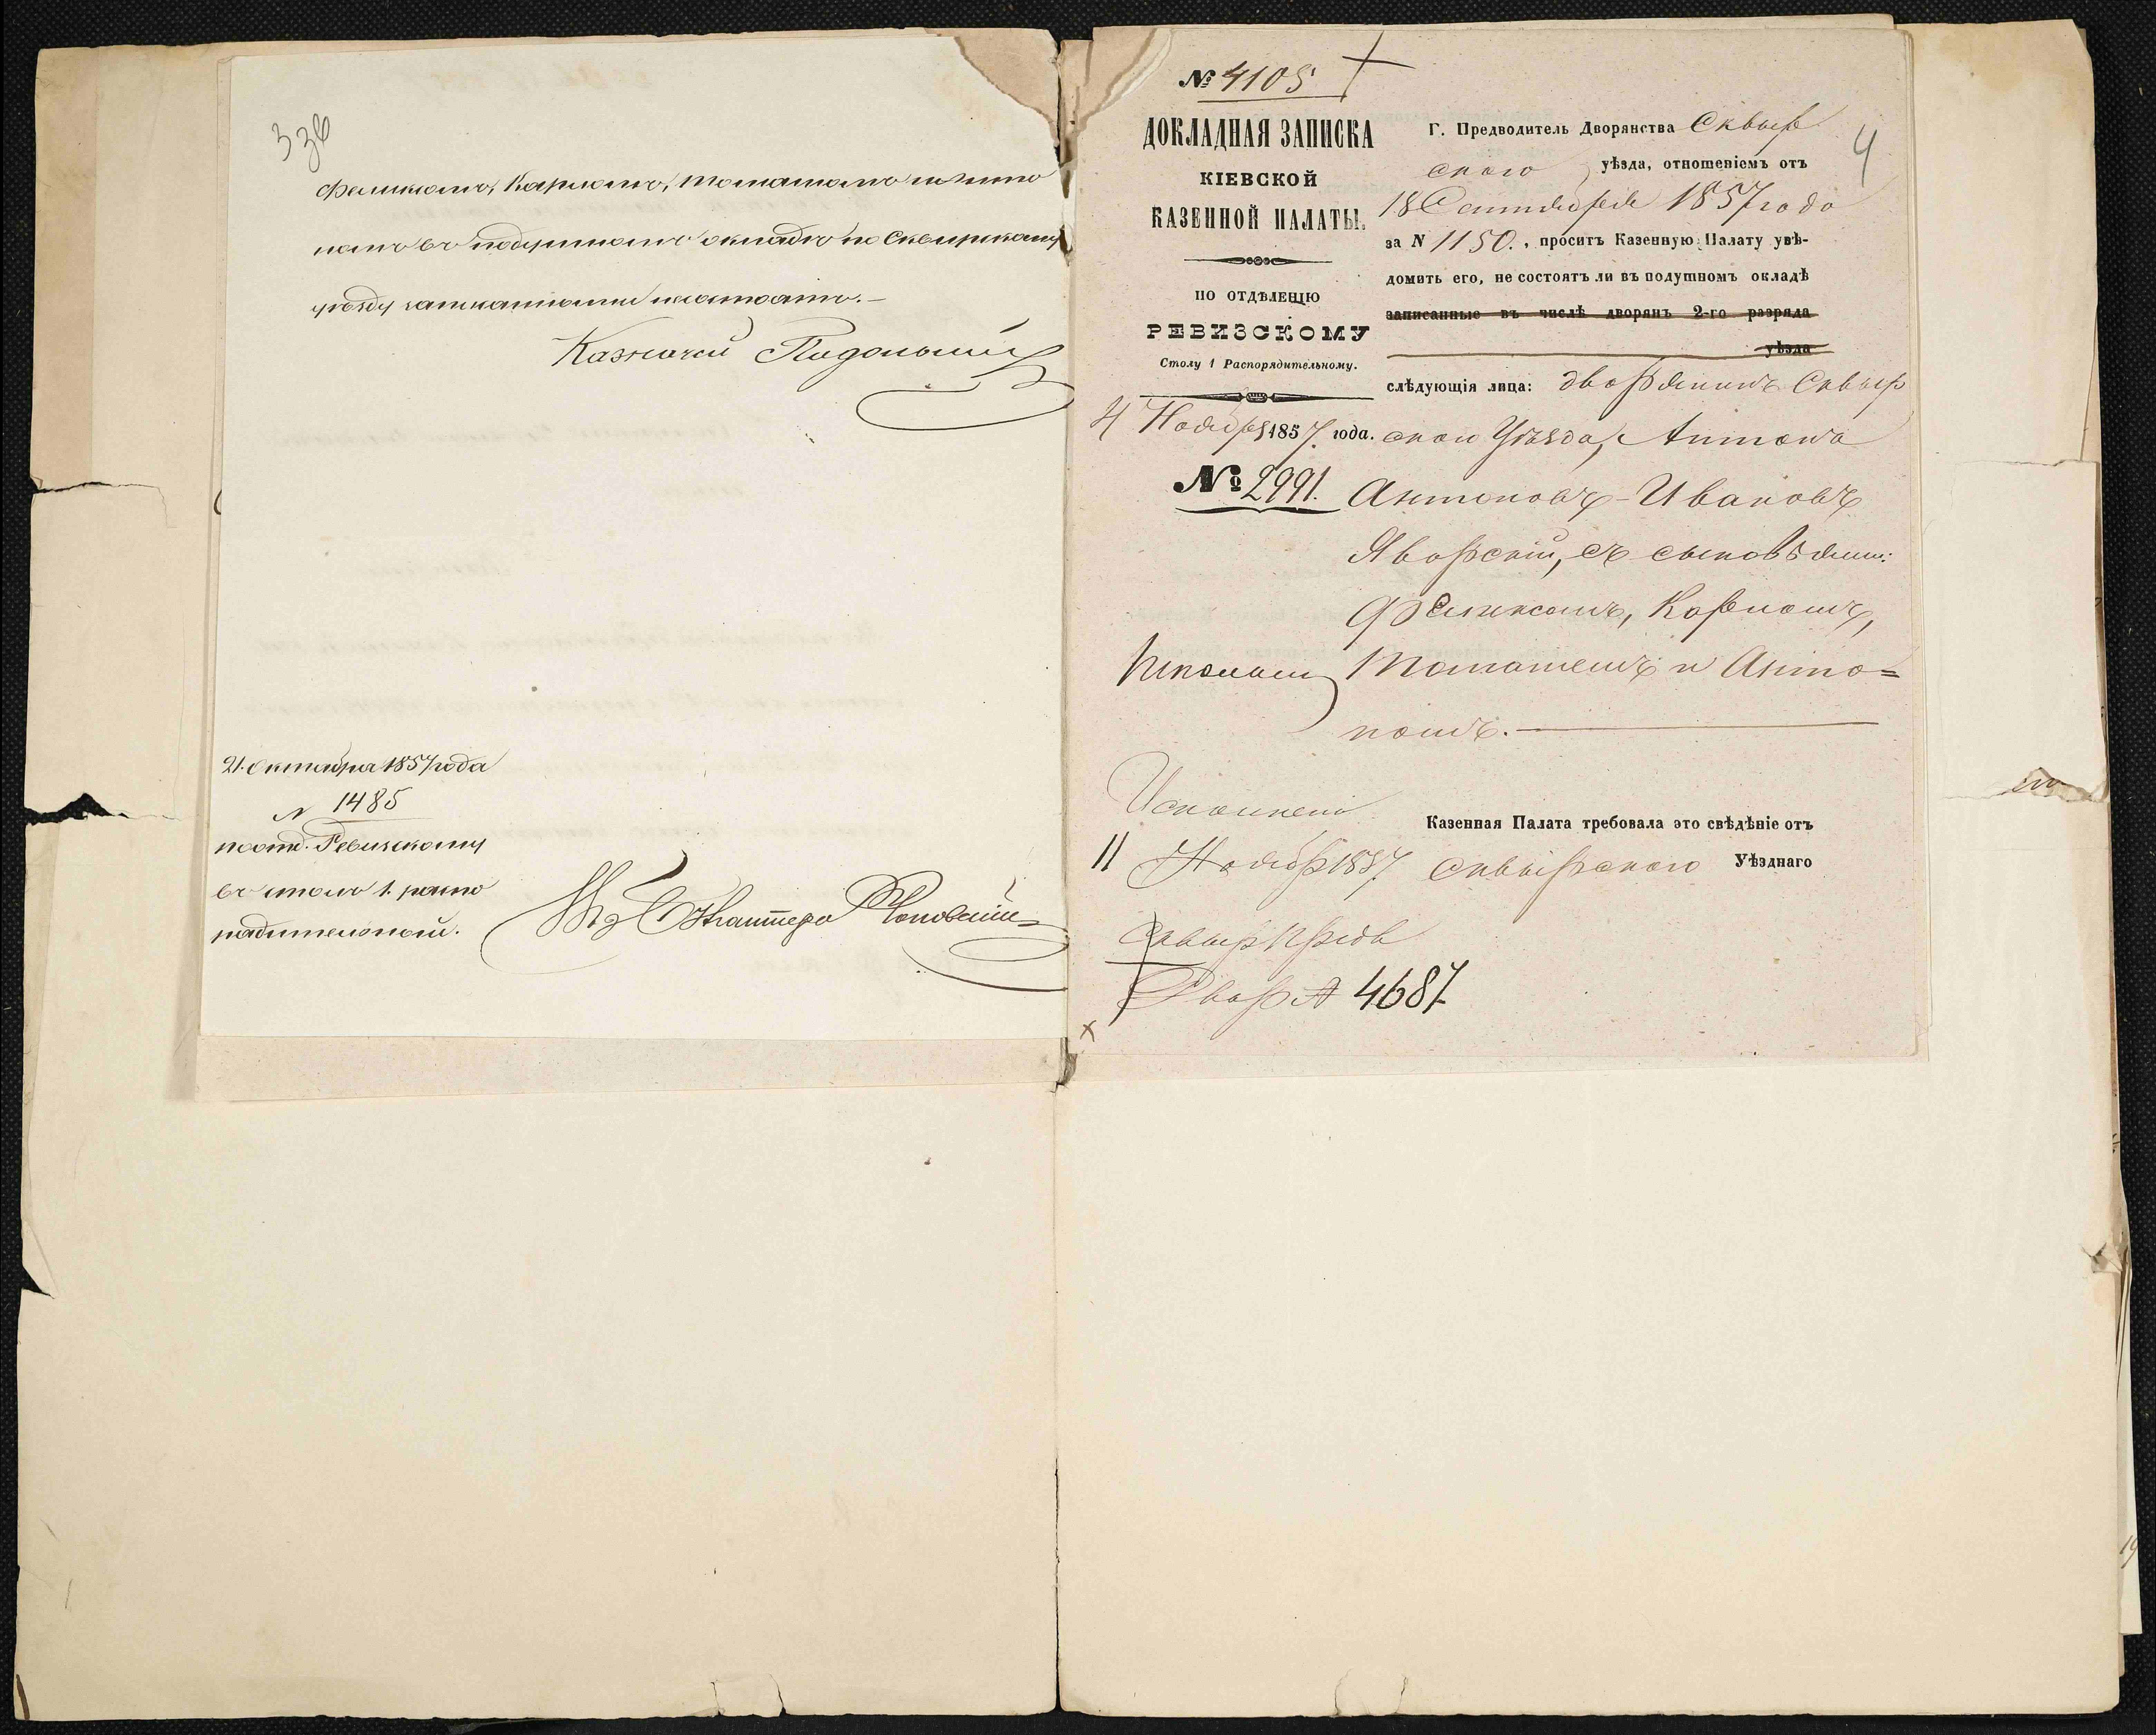 3 зв
Феликсомъ, Карломъ, Томашомъ и Анто
номъ въ подушномъ окладѣ по Сквирскому
уѣзду записанными несостоятъ.—
Казначей Подольскій
21. Октября 1857 года
N 1485
по отд. Ревизскому
въ столъ 1. распо
рядительный.
№ 4105
ДОКЛАДНАЯ ЗАПИСКА
КІЕВСКОЙ
КАЗЕННОЙ ПАЛАТЫ.
ПО ОТДѢЛЕНІЮ
РЕВИЗСКОМУ
Столу 1 Распорядительному.
4 Ноября 1857. года.
№ 2991.
4
Г. Предводитель Дворянства Сквир
скаго уѣзда, отношеніемъ отъ
18 Сентября 1857 года
за N 1150., проситъ Казенную Палату увѣ-
домить его, не состоятъ ли въ подушномъ окладѣ
записанные въ числѣ дворянъ 2-го разряда
уѣзда
слѣдующія лица: дворянинъ Сквир
скаго Уѣзда, Антонъ
Антоновъ-Ивановъ
Яворскій, съ сыновьями:
Феликсомъ, Карломъ,
Томашемъ и Анто=
номъ.—
Исполнено
11 Ноябр 1857.
Казенная Палата требовала это свѣдѣніе отъ
Сквирскаго Уѣзднаго
Сквир Предв
Двор № 4687